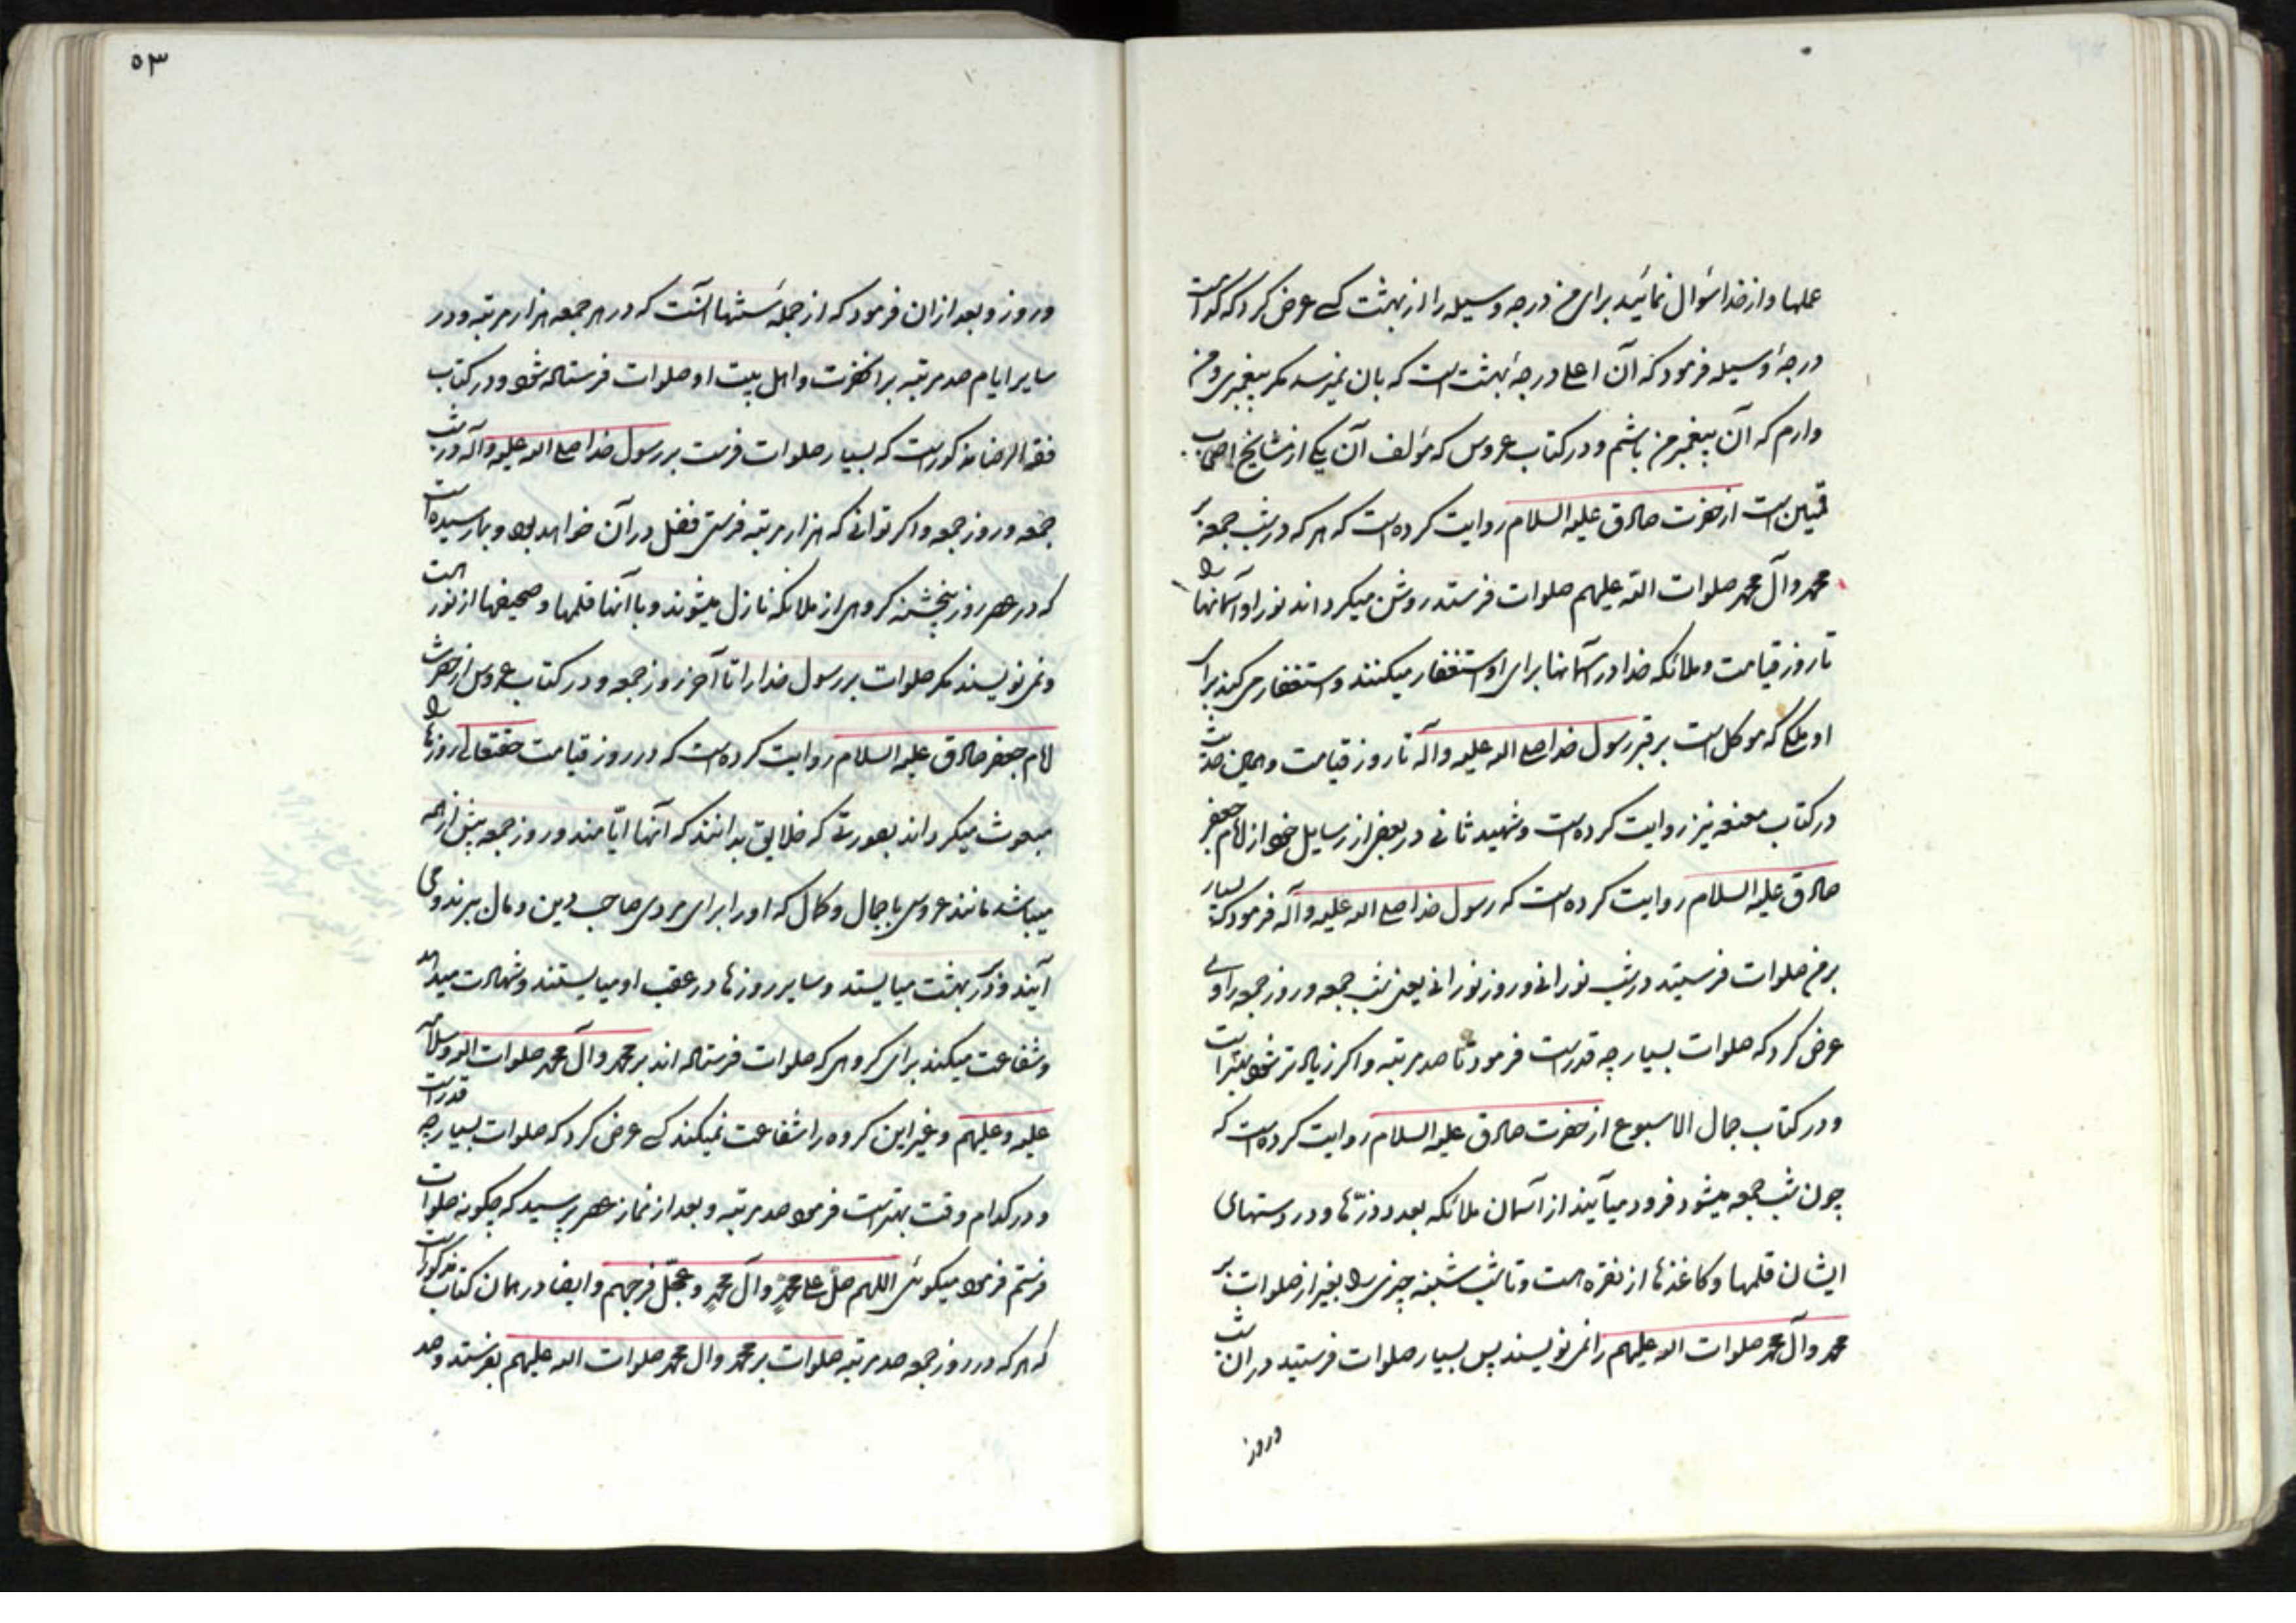 عملها و از خدا سؤال نمائید برای من درجه وسیله را از بهشت کسی عرض کرد که کدام است
درجهٔ وسیله فرمود که آن اعلی درجهٔ بهشت است که بآن نمیرسد مکر پیغمبری و من
دارم که آن پیغمبر من باشم و در کتاب عروس که مؤلف آن یکی از مشایخ اصحاب
قمیین است از حضرت صادق علیه السلام روایت کرده است که هر که در شب جمعه بر
محمد و آل محمد صلوات الله علیهم صلوات فرستد روشن میکرداند نور او آسمانها را
تا روز قیامت و ملائکه خدا در آسمانها برای او استغفار میکنند و استغفار می کند برای
او ملکی که موکل است بر قبر رسول خدا صلی الله علیه وآله تا روز قیامت و همین حدیث
در کتاب مقنعه نیز روایت کرده است و شهید ثانی در بعض از رسایل خود از امام جعفر
صادق علیه السلام روایت کرده است که رسول خدا صلی الله علیه وآله فرمود که بسیار
بر من صلوات فرستید در شب نورانی و روز نورانی یعنی شب جمعه و روز جمعه راوی
عرض کرد که صلوات بسیار چه قدر است فرمود تا صد مرتبه و اکر زیاده تر شود بهتر است
و در کتاب جمال الاسبوع از حضرت صادق علیه السلام روایت کرده است که
چون شب جمعه میشود فرود میآیند از آسمان ملائکه بعدد ذرّها و در دستهای
ایشان قلمها و کاغذها از نقره است و تا شب شنبه چیزی را بغیر از صلوات بر
محمد و آل محمد صلوات الله علیهم را نمی نویسند پس بسیار صلوات فرستید در آن شب
و روز
۵۳
و روز و بعد از ان فرمود که از جمله سنتها آنست که در هر جمعه هزار مرتبه و در
سایر ایام صد مرتبه بر آنحضرت و اهل بیت او صلوات فرستاده شود و در کتاب
فقه الرضا مذکور است که بسیار صلوات فرست بر رسول خدا صلی الله علیه وآله در شب
جمعه و روز جمعه و اکر توانی که هزار مرتبه فرستی فضل در آن خواهد بود و بما رسیده است
که در عصر روز پنجشنبه کروهی از ملائکه نازل میشوند و با آنها قلمها و صحیفها از نور است
و نمی نویسند مکر صلوات بر رسول خدا را تا آخر روز جمعه و در کتاب عروس از حضرت
امام جعفر صادق علیه السلام روایت کرده است که در روز قیامت حقتعالی روزها را
مبعوث میکرداند بصورتی که خلایق بدانند که آنها ایّامند و روز جمعه پیش از همه
میباشد مانند عروس با جمال و کمال که او را برای مردی صاحب دین و مال ببرند و می
آیند و در بهشت میایستد و سایر روزها در عقب او میایستند و شهادت میدهد
و شفاعت میکند برای کروهی که صلوات فرستاده اند بر محمد و آل محمد صلوات الله و سلامه
علیه و علیهم و غیر این کروه را شفاعت نمیکند کسی عرض کرد که صلوات بسیار چه قدر است
و در کدام وقت بهتر است فرمود صد مرتبه و بعد از نماز عصر پرسید که چکونه صلوات
فرستم فرمود میکوئی اللهم صلّ علی محمدٍ و آل محمدٍ و عجّل فرجهم و ایضا در همان کتاب مذکور است
که هر که در روز جمعه صد مرتبه صلوات بر محمد و ال محمد صلوات الله علیهم بفرستد و صد